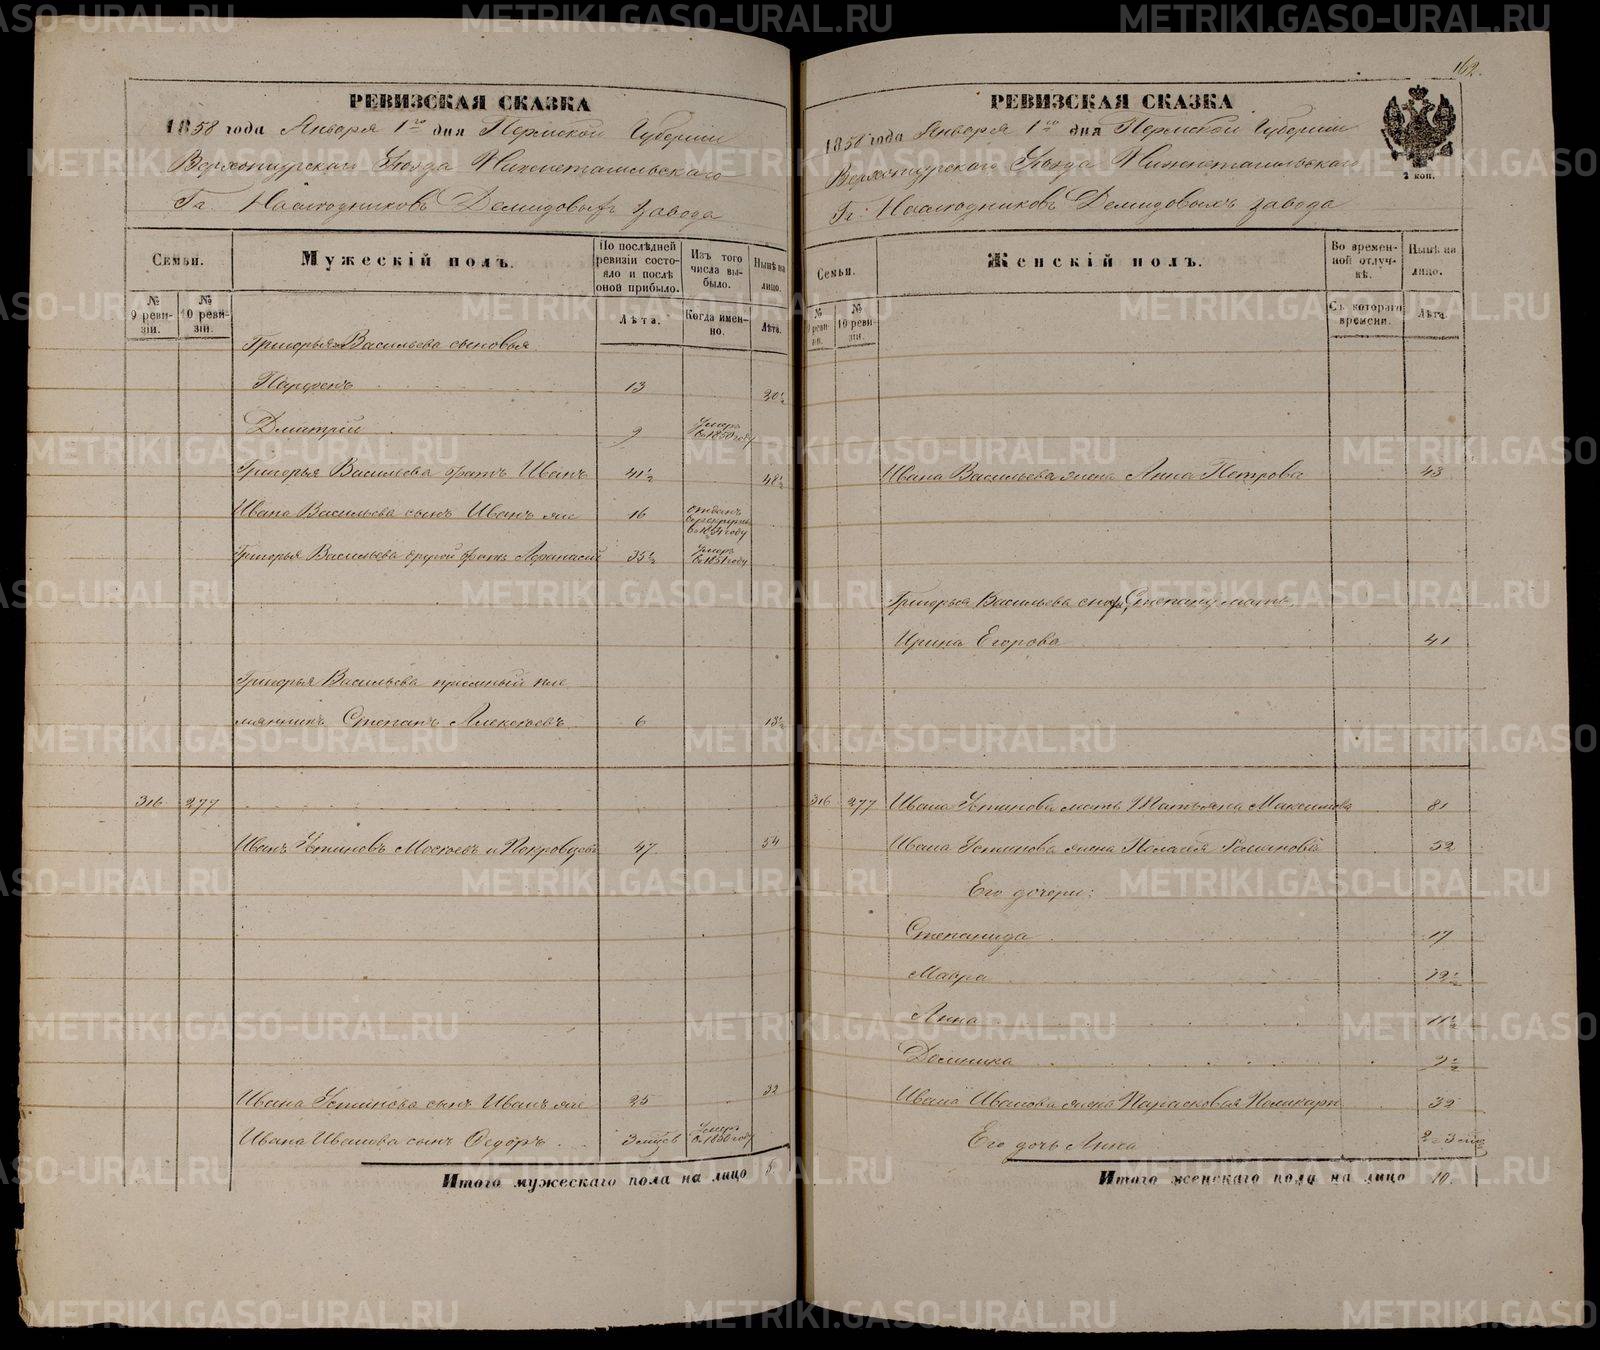 162.
РЕВИЗСКАЯ СКАЗКА
1858 года Января 1го дня Пермской Губернии
Верхотурскаго Уѣзда Нижнетагильскаго
Гг. Наслѣдниковъ Демидовыхъ завода
Семьи.
Мужескій полъ.
По послѣдней ревизіи состояло и послѣ оной прибыло.
Изъ того числа выбыло.
Нынѣ на лицо.
№ 9 ревизіи.
№ 10 ревизіи.
Лѣта.
Когда именно.
Лѣта.
Григорья Васильева сыновья
Парфенъ 13 20½
Дмитрій 9 Умеръ въ 1850 году
Григорья Васильева братъ Иванъ 41½ 48½
Ивана Васильева сынъ Иванъ 16 отданъ въ рекруты въ 1854 году
Григорья Васильева другой братъ Афанасій 35½ Умеръ въ 1851 году
Григорья Васильева пріемный пле
мянникъ Степанъ Алексѣевъ 6 13½
316 277
Иванъ Устиновъ 47 54
Ивана Устинова сынъ Иванъ 25 32
Ивана Иванова сынъ Федоръ 3 мѣс Умеръ въ 1850 году
Итого мужескаго пола на лицо 5.
РЕВИЗСКАЯ СКАЗКА
2 коп.
1858 года Января 1го дня Пермской Губерніи
Верхотурскаго Уѣзда Нижнетагильскаго
Гг. Наслѣдниковъ Демидовыхъ завода
Семьи.
Женскій полъ.
Во временной отлучкѣ.
Нынѣ на лицо.
№ 9 ревизіи.
№ 10 ревизіи.
Съ котораго времени.
Лѣта.
Ивана Васильева жена Анна Петрова 43
Григорья Васильева Степану мать
Ирина Егорова 41
316 277 Ивана Устинова мать Татьяна Максимова 81
Ивана Устинова жена Полагѣя Романова 52
Его дочери:
Степанида 17
Мавра 12½
Анна 11½
Домника 9½
Ивана Иванова жена Парасковья Поликарп 32
Его дочь Анна
Итого женскаго пола на лицо 10.
METRIKI.GASO-URAL.RU